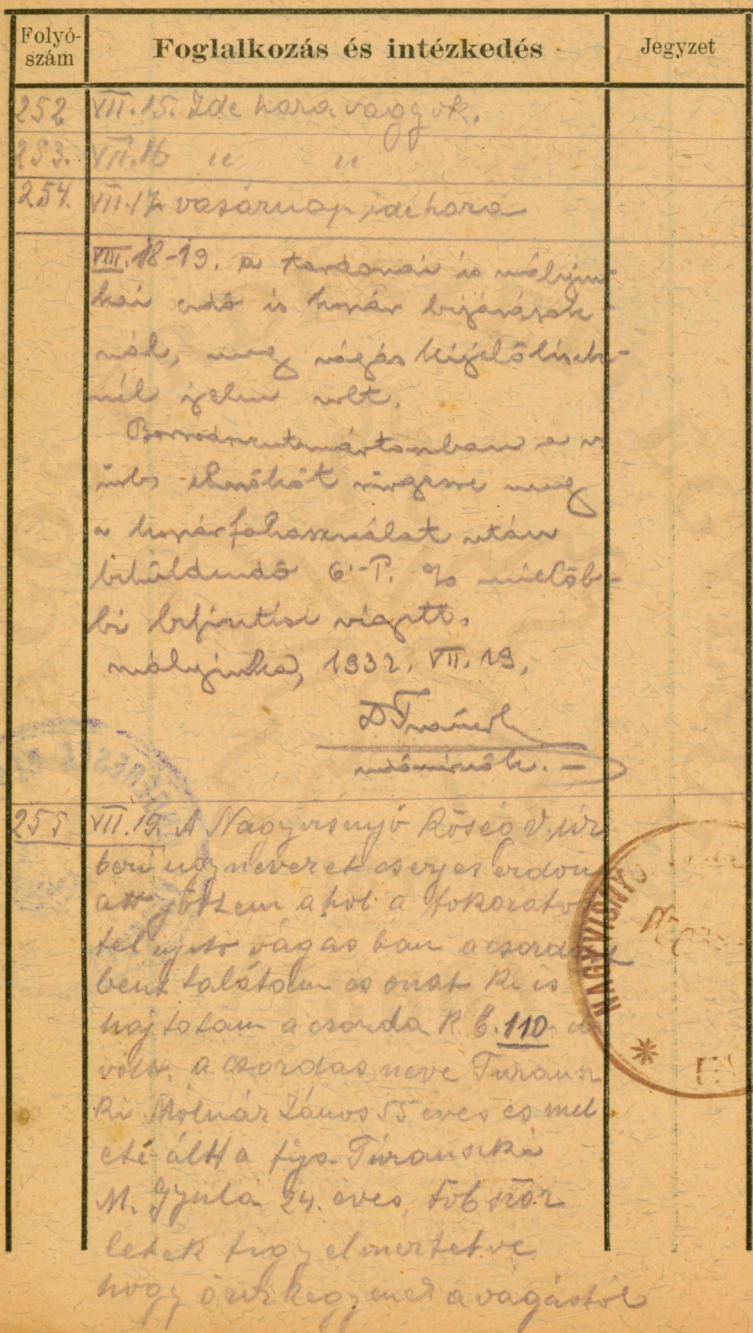 Folyó-
szám
Foglalkozás és intézkedés
Jegyzet
252 VII.15. Ide hara vagyok.
253. VII.16 " "
254. VII.17 vasárnap, idehara
VII.18-19. a tardonai és mályin-
kai erdő és kopár bejárások-
nál, meg vágás kijelölések-
nél jelen volt.
Borsodszentmártonban a v
úrb. elnököt sürgesse meg
a kopárfahasználat után
beküldendő 6.-P. % mielőb-
bi befizetése végett.
Mályinka, 1932. VII. 19.
erdőmérnök.
255 VII.19. A Nagyvisnyó Község V. úr
beri neveret cserjes erdőn
att jöttem ahol a
vágás ban a csordát
bent találtam és onat ki is
hajtotam a csorda K b. 110
volt. a csordás neve Turansz
ki Molnár János 55 éves és mel
eté áltt a fija Turanszki
M. Gyula 24. éves, töb ször
letek figyelmeztetve
hogy őrizkegyenek a vágástól
NAGYVISNYÓ